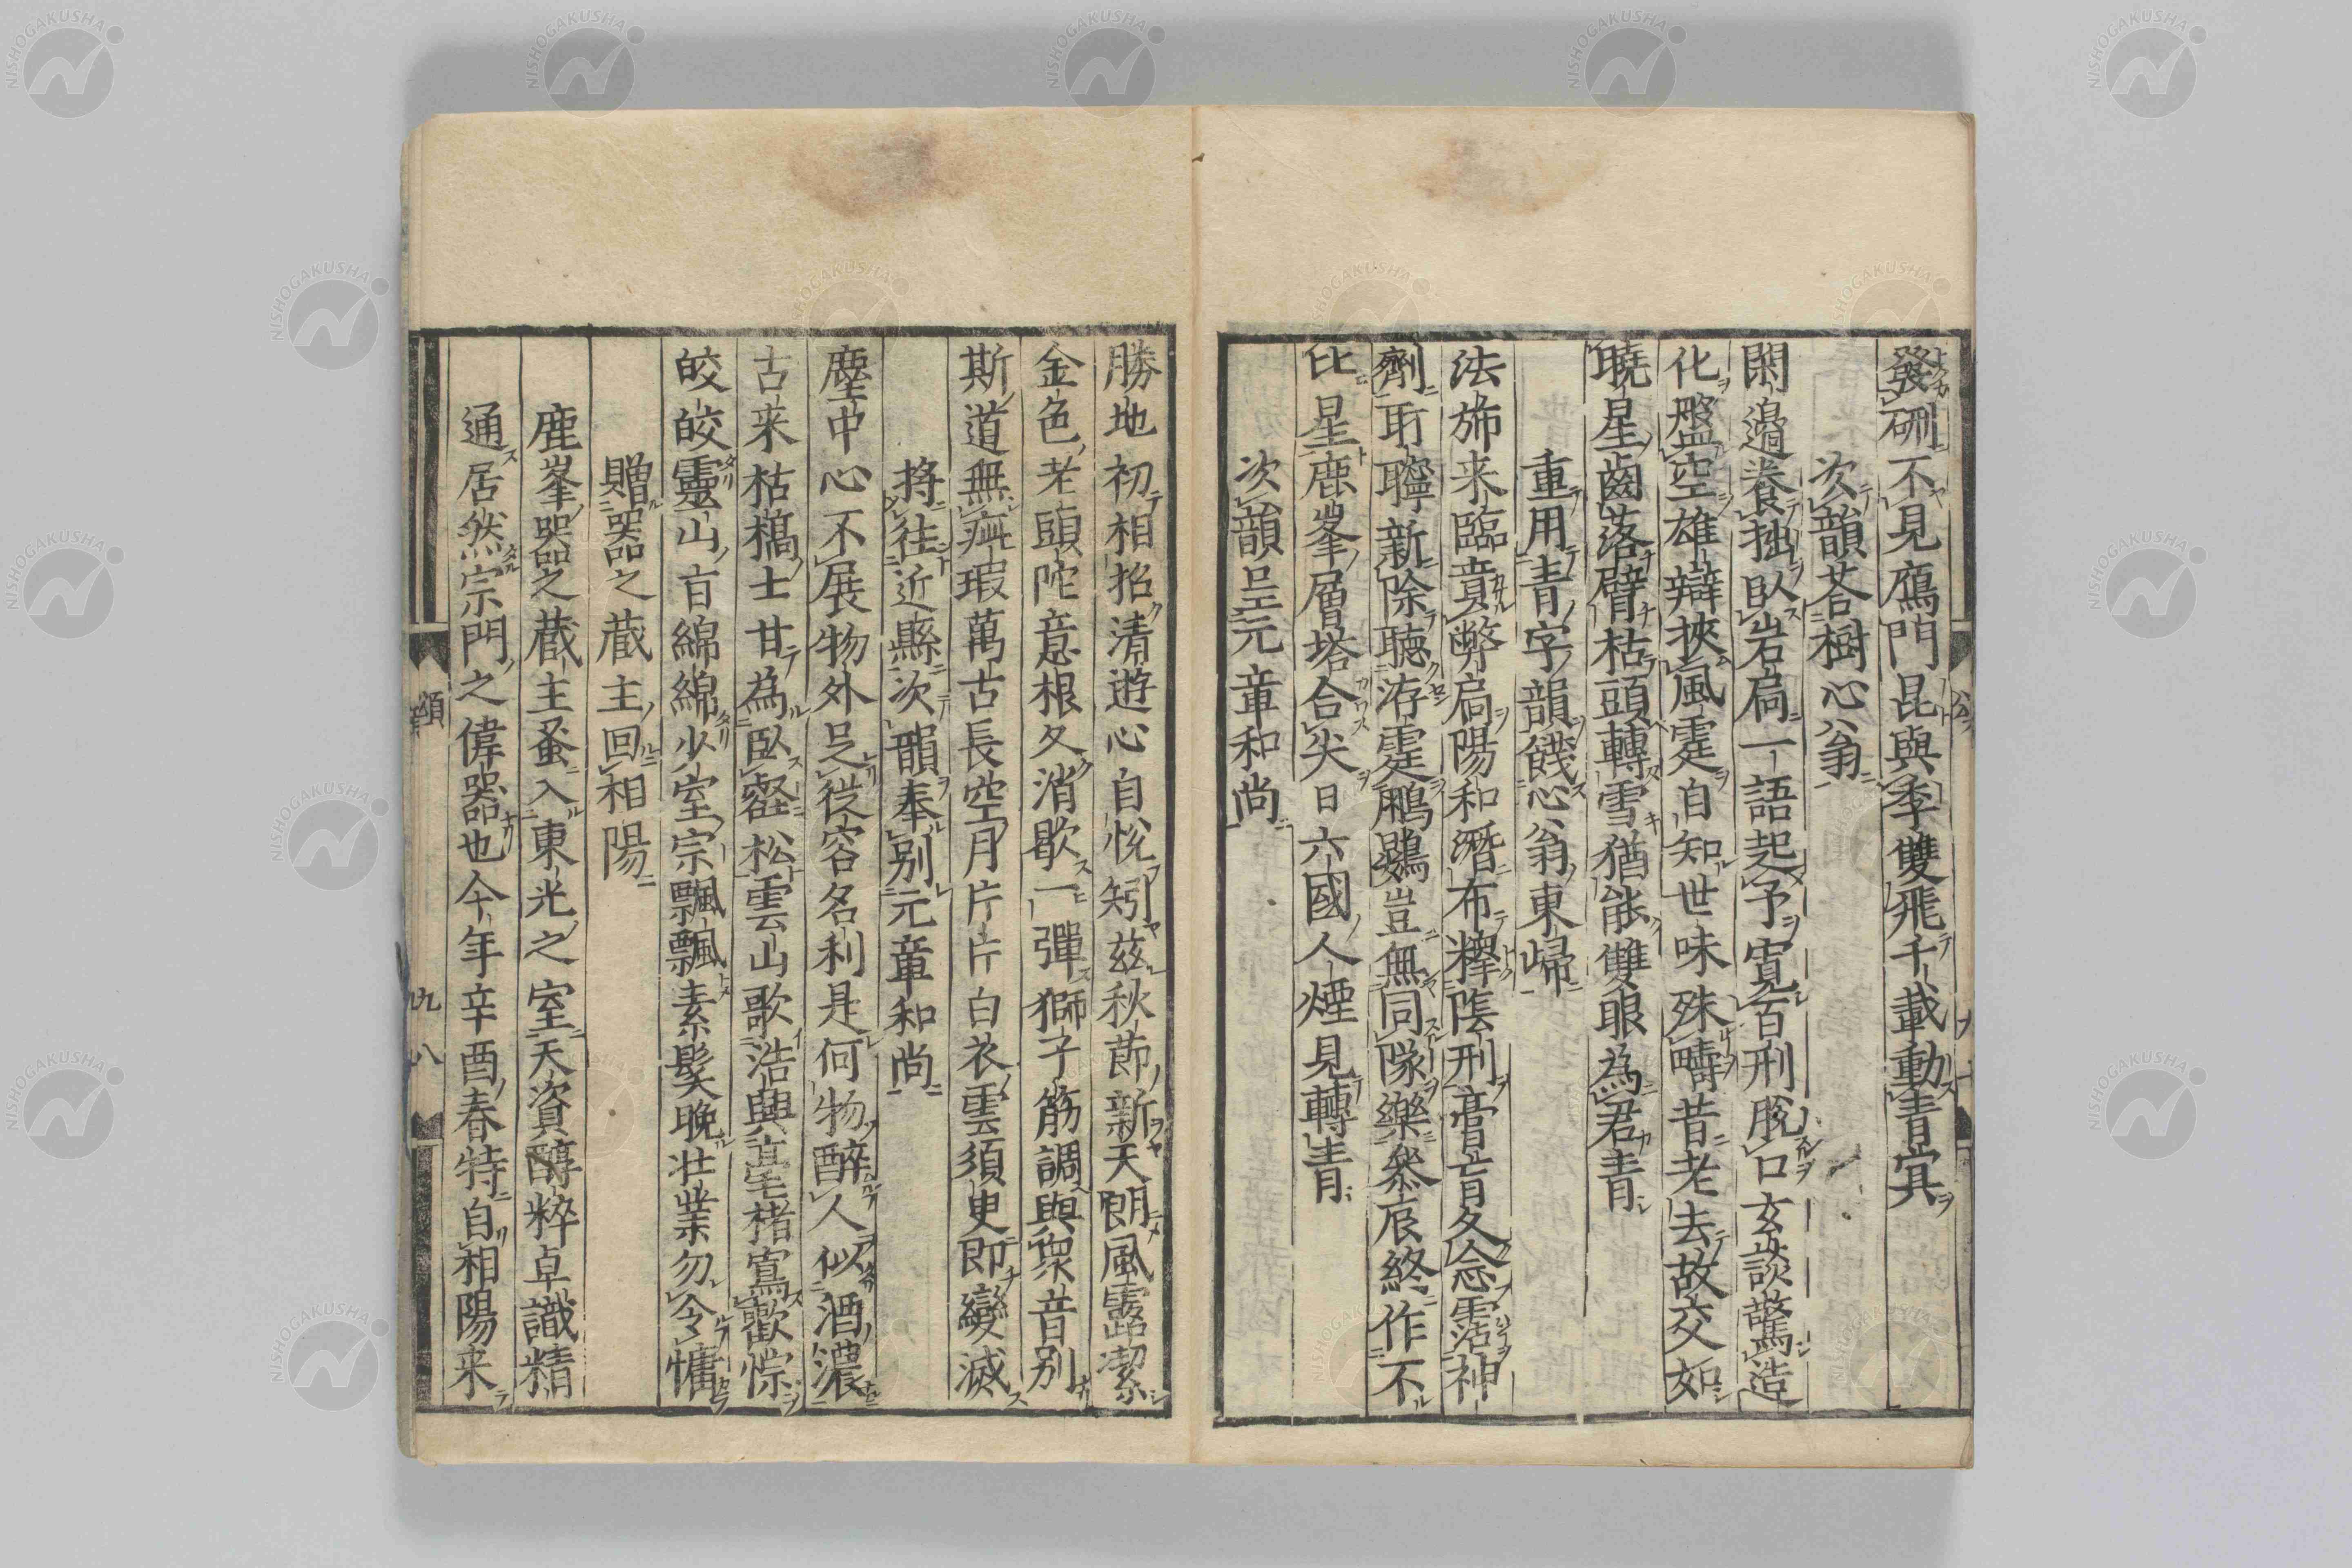 發硎不見鴈門昆與季雙飛千載動青冥
次韻荅樹心翁
閑邊養拙臥岩扃一語起予寛百刑脫口玄談驚造
化盤空雄辯挾風霆自知世味殊疇昔老去故交如
曉星齒落臂枯頭轉雪猶能雙眼為君青
重用青字韻餞心翁東歸
法旆来臨賁弊扃陽和潛布釋陰刑膏肓久念霑神
劑耵聹新除聽洊霆鵬鷃豈無同隊樂參辰終作不
比星鹿峯層塔合尖日六國人煙見轉青
次韻呈元章和尚
勝地初相招清遊心自悅矧茲秋節新天朗風露潔
金色老頭陀意根久消歇一彈獅子筋調與衆音別
斯道無疵瑕萬古長空月片片白衣雲須臾即變滅
將往近縣次韻奉別元章和尚
塵中心不展物外足從容名利是何物醉人似酒濃
古来枯槁士甘為臥壑松雲山歌浩興毫楮寫歡悰
皎皎靈山盲綿綿少室宗飄飄素髮晚壮業勿令慵
贈器之蔵主回相陽
鹿峯器之蔵主蚤入東光之室天資醇粹卓識精
通居然宗門之偉器也今年辛酉春特自相陽来
九八